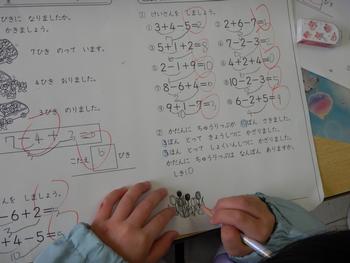 ひきに なりましたか。
かきましょう。
7ひき のって います。
4ひき おりました。
3びき のりました。
7-4+3=6
こたえ 6 ぴき
しましょう。
-6+2=
+4-5=
② けいさんを しましょう。
① 3+4-5=2
② 2+6-7=1
③ 5+1+2=8
④ 7-2-3=2
⑤ 2-1+9=10
⑥ 4+2+4=10
⑦ 8-6+4=6
⑧ 10-2-3=5
⑨ 9+1-7=3
⑩ 6-2+5=9
② かだんに ちゅうりっぷが 10ぽん さきました。
3ぼん とって きょうしつに かざりました。
3ぼん とって しょくいんしつに かざりました。
かだんに ちゅうりっぷは なんぼん ありますか。
しき10